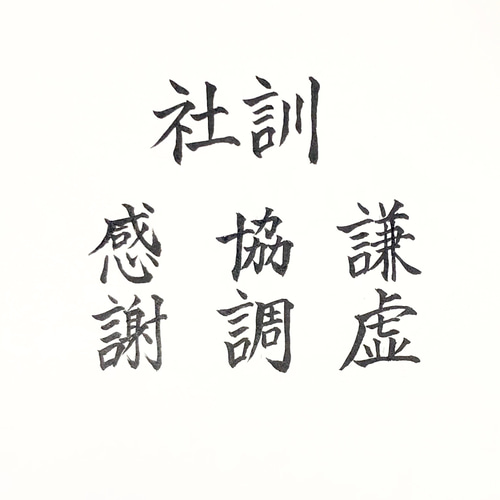 社訓
謙虚
協調
感謝